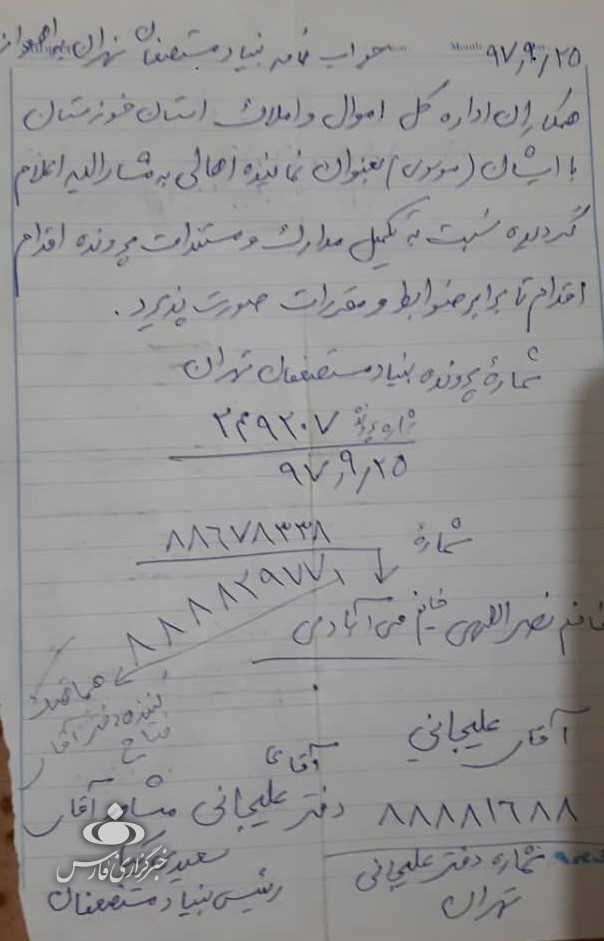 جواب نامه بنیاد مستضعفان تهران به اهواز ۹۷٫۹٫۲۵
همکاران اداره کل اموال و املاک استان خوزستان
با ایشان (موسوی) بعنوان نماینده اهالی به مشارالیه اعلام
گردیده نسبت به تکمیل مدارک و مستندات پرونده اقدام
اقدام تا برابر ضوابط و مقررات صورت پذیرد.
شمارهٔ پرونده بنیاد مستضعفان تهران
شماره پرونده
۹۷٫۹٫۲۵
شمارهٔ ۸۸۶۷۸۳۳۸
خانم نصراللهی خانم
هماهنگ
کننده دفتر آقای
فتاح
آقای علیجانی
آقای
دفتر علیجانی مشاور آقای
۸۸۸۸۱۶۸۸
سعیدی
شماره دفتر علیجانی
رئیس بنیاد مستضعفان
تهران
خبرگزاری فارس